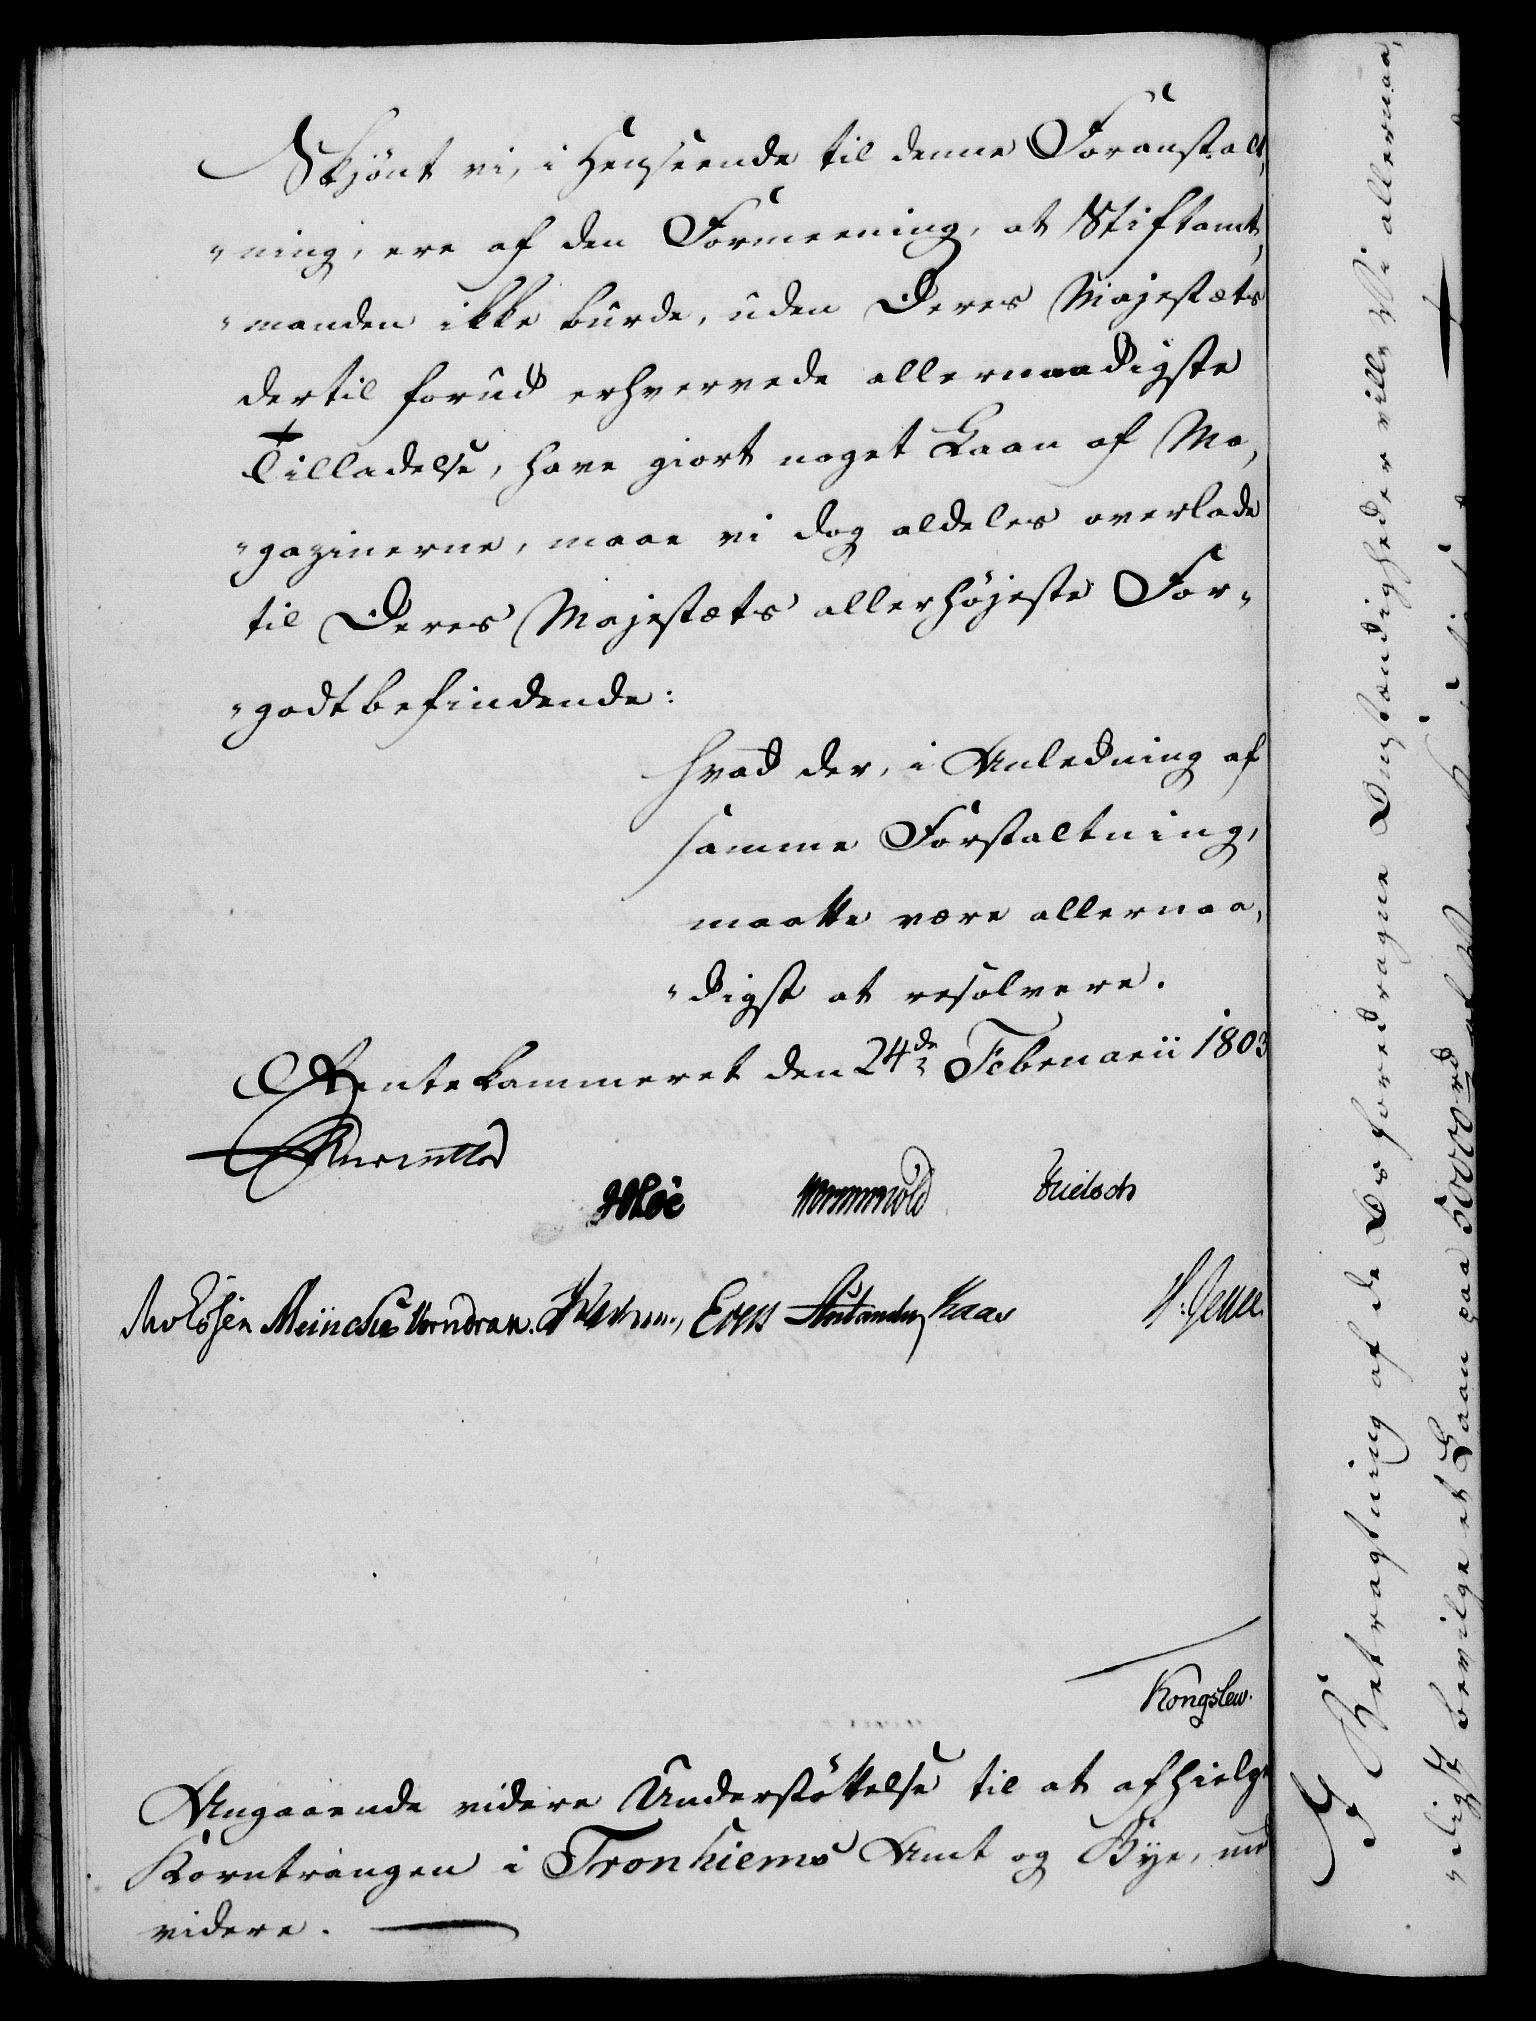 Skjönt vi, i Henseende til denne Foranstalt,
„ning, ere af den Formeening, at Stiftamt,
„manden ikke burde, uden Deres Majestæts
dertil forud erhvervede allernaadigste
Tilladelse, have giort noget Laan af Ma,
„gazinerne, maae vi dog aldeles overlade
til Deres Majestæts allerhöjeste For„
„godtbefindende:
hvad der, i Anledning af
samme Forstaltning,
maatte være allernaa,
„digst at resolvere.
Rentekammeret den 24de Februarii 1803
Reventlow
Wormskiold Frielsch
Meincke Vorndran. Evers Kaas
Kongslew.
Angaaende videre Understöttelse til at afhielpe
Korntrangen i Tronhiems Amt og Bye, med
videre.
I Betragtning af de Os foredragne Omstændigheder ville Vi allernaa,
„digst bevilge et Laan paa 50000 rd